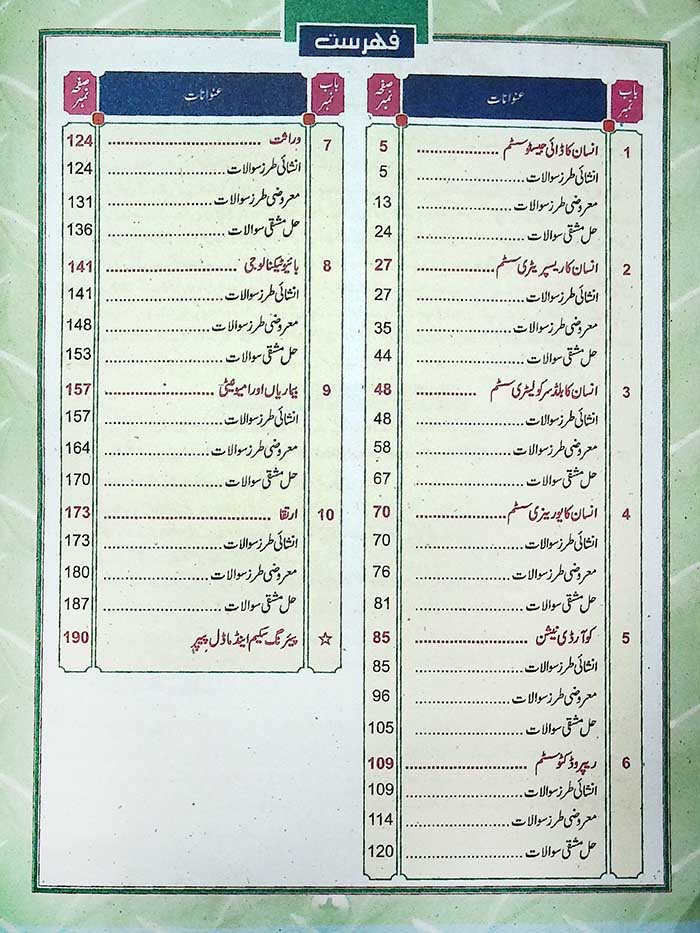 فہرست
باب نمبر عنوانات صفحہ نمبر
1 انسان کا ڈائی جیسٹو سسٹم .................. 5
انشائی طرز سوالات ........................ 5
معروضی طرز سوالات ...................... 13
حل مشقی سوالات .......................... 24
2 انسان کا ریسپریٹری سسٹم ................. 27
انشائی طرز سوالات ........................ 27
معروضی طرز سوالات ...................... 35
حل مشقی سوالات .......................... 44
3 انسان کا بلڈ سرکولیٹری سسٹم ............. 48
انشائی طرز سوالات ........................ 48
معروضی طرز سوالات ...................... 58
حل مشقی سوالات .......................... 67
4 انسان کا یورینری سسٹم .................... 70
انشائی طرز سوالات ........................ 70
معروضی طرز سوالات ...................... 76
حل مشقی سوالات .......................... 81
5 کوآرڈی نیشن ............................. 85
انشائی طرز سوالات ........................ 85
معروضی طرز سوالات ...................... 96
حل مشقی سوالات .......................... 105
6 ریپروڈکٹو سسٹم .......................... 109
انشائی طرز سوالات ........................ 109
معروضی طرز سوالات ...................... 114
حل مشقی سوالات .......................... 120
باب نمبر عنوانات صفحہ نمبر
7 وراثت .................................. 124
انشائی طرز سوالات ........................ 124
معروضی طرز سوالات ...................... 131
حل مشقی سوالات .......................... 136
8 بائیوٹیکنالوجی .......................... 141
انشائی طرز سوالات ........................ 141
معروضی طرز سوالات ...................... 148
حل مشقی سوالات .......................... 153
9 بیماریاں اور امیونیٹی .................... 157
انشائی طرز سوالات ........................ 157
معروضی طرز سوالات ...................... 164
حل مشقی سوالات .......................... 170
10 ارتقا .................................. 173
انشائی طرز سوالات ........................ 173
معروضی طرز سوالات ...................... 180
حل مشقی سوالات .......................... 187
☆ پیئرنگ سکیم اینڈ ماڈل پیپر 190